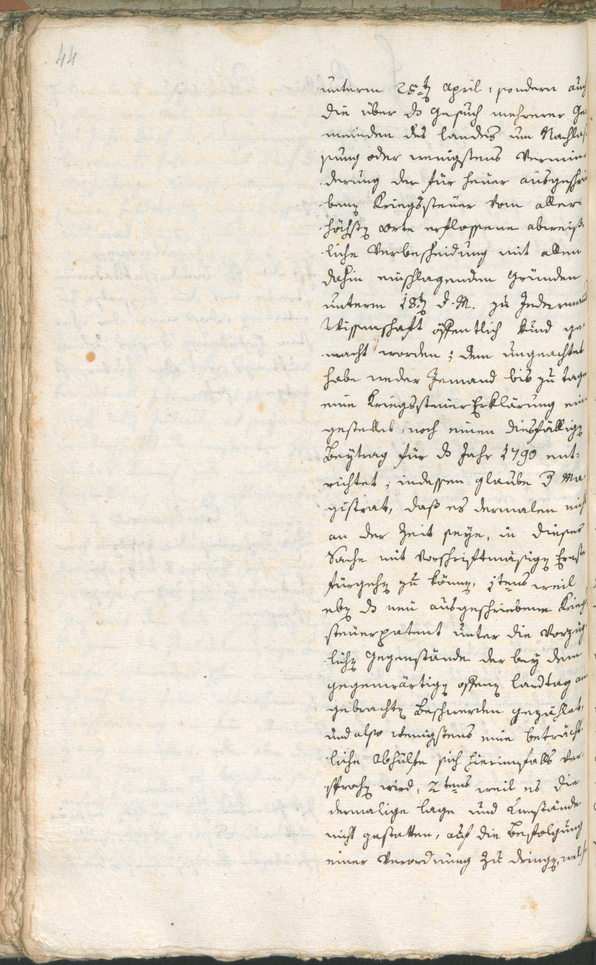 44
unterm 25ten April, sondern auch
die über ds Gesuch mehrerer Ge
meinden des Landes um Nachlas
sung oder wenigstens Vermin
derung der für heuer ausgeschrie
benen Kriegssteuer vom aller
höchsten Orte erflossene abweiß
liche Verbescheidung mit allen
dahin einschlagenden Gründen
unterm 18ten d. M. zu Jedermanns
Wissenschaft öffentlich kund ge
macht worden; dem ungeachtet
habe weder Jemand bis zu tage
eine KriegssteuerErklärung ein
gestellet, noch einen diesfälligen
Beytrag für ds Jahr 1790 ent-
richtet, indessen glaube Ma
gistrat, daß es dermalen nicht
an der Zeit seye, in dieser
Sache mit vorschriftmäsigen
fürgehen zu können, 1tens weil
eben ds neu ausgeschriebene Krieg
steuerpatent unter die vorzüg
lichen Gegenstände der bey dem
gegenwärtigen offenen Landtag an
gebrachten Beschwerden gezählet,
und also wenigstens eine beträcht
liche Abhülfe sich hierinfalls ver
sprochen wird, 2tens weil es die
dermalige Lage und Umstände
nicht gestatten, auf die Befolgung
einer Verordnung zu dringen, welche